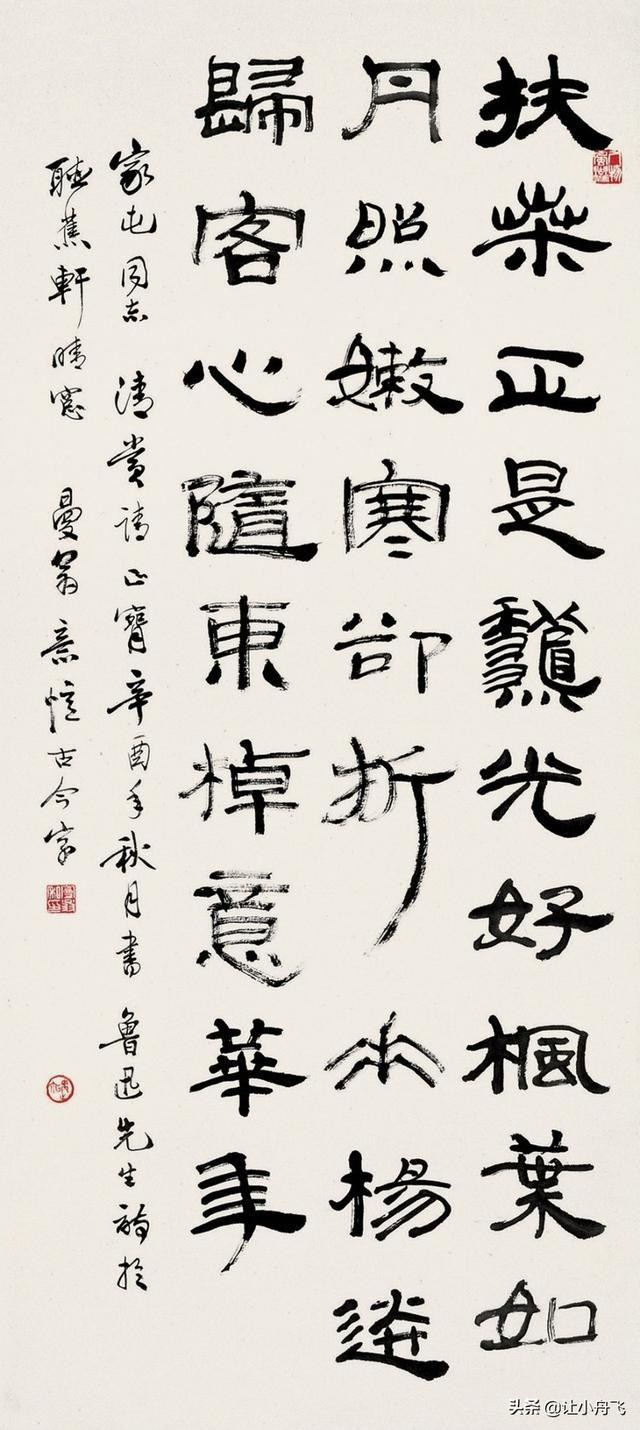 扶桒正是龝光好楓葉如
丹照嫩寒卻折垂楊送
歸客心隨東棹意華年
家屯同志 清賞請正 辛酉年秋月書 魯迅先生詩於
聽蕉軒晴窗 曼翁 古今字
头条 @让小舟飞